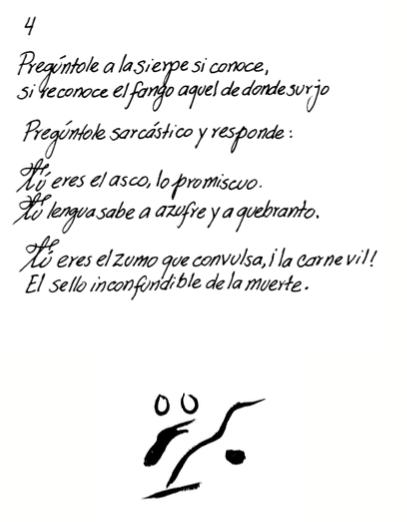 4
Pregúntole a la sierpe si conoce,
si reconoce el fango aquel de donde surjo
Pregúntole sarcástico y responde:
Tú eres el asco, lo promiscuo.
Tu lengua sabe a azufre y a quebranto.
Tú eres el zumo que convulsa, ¡la carne vil!
El sello inconfundible de la muerte.